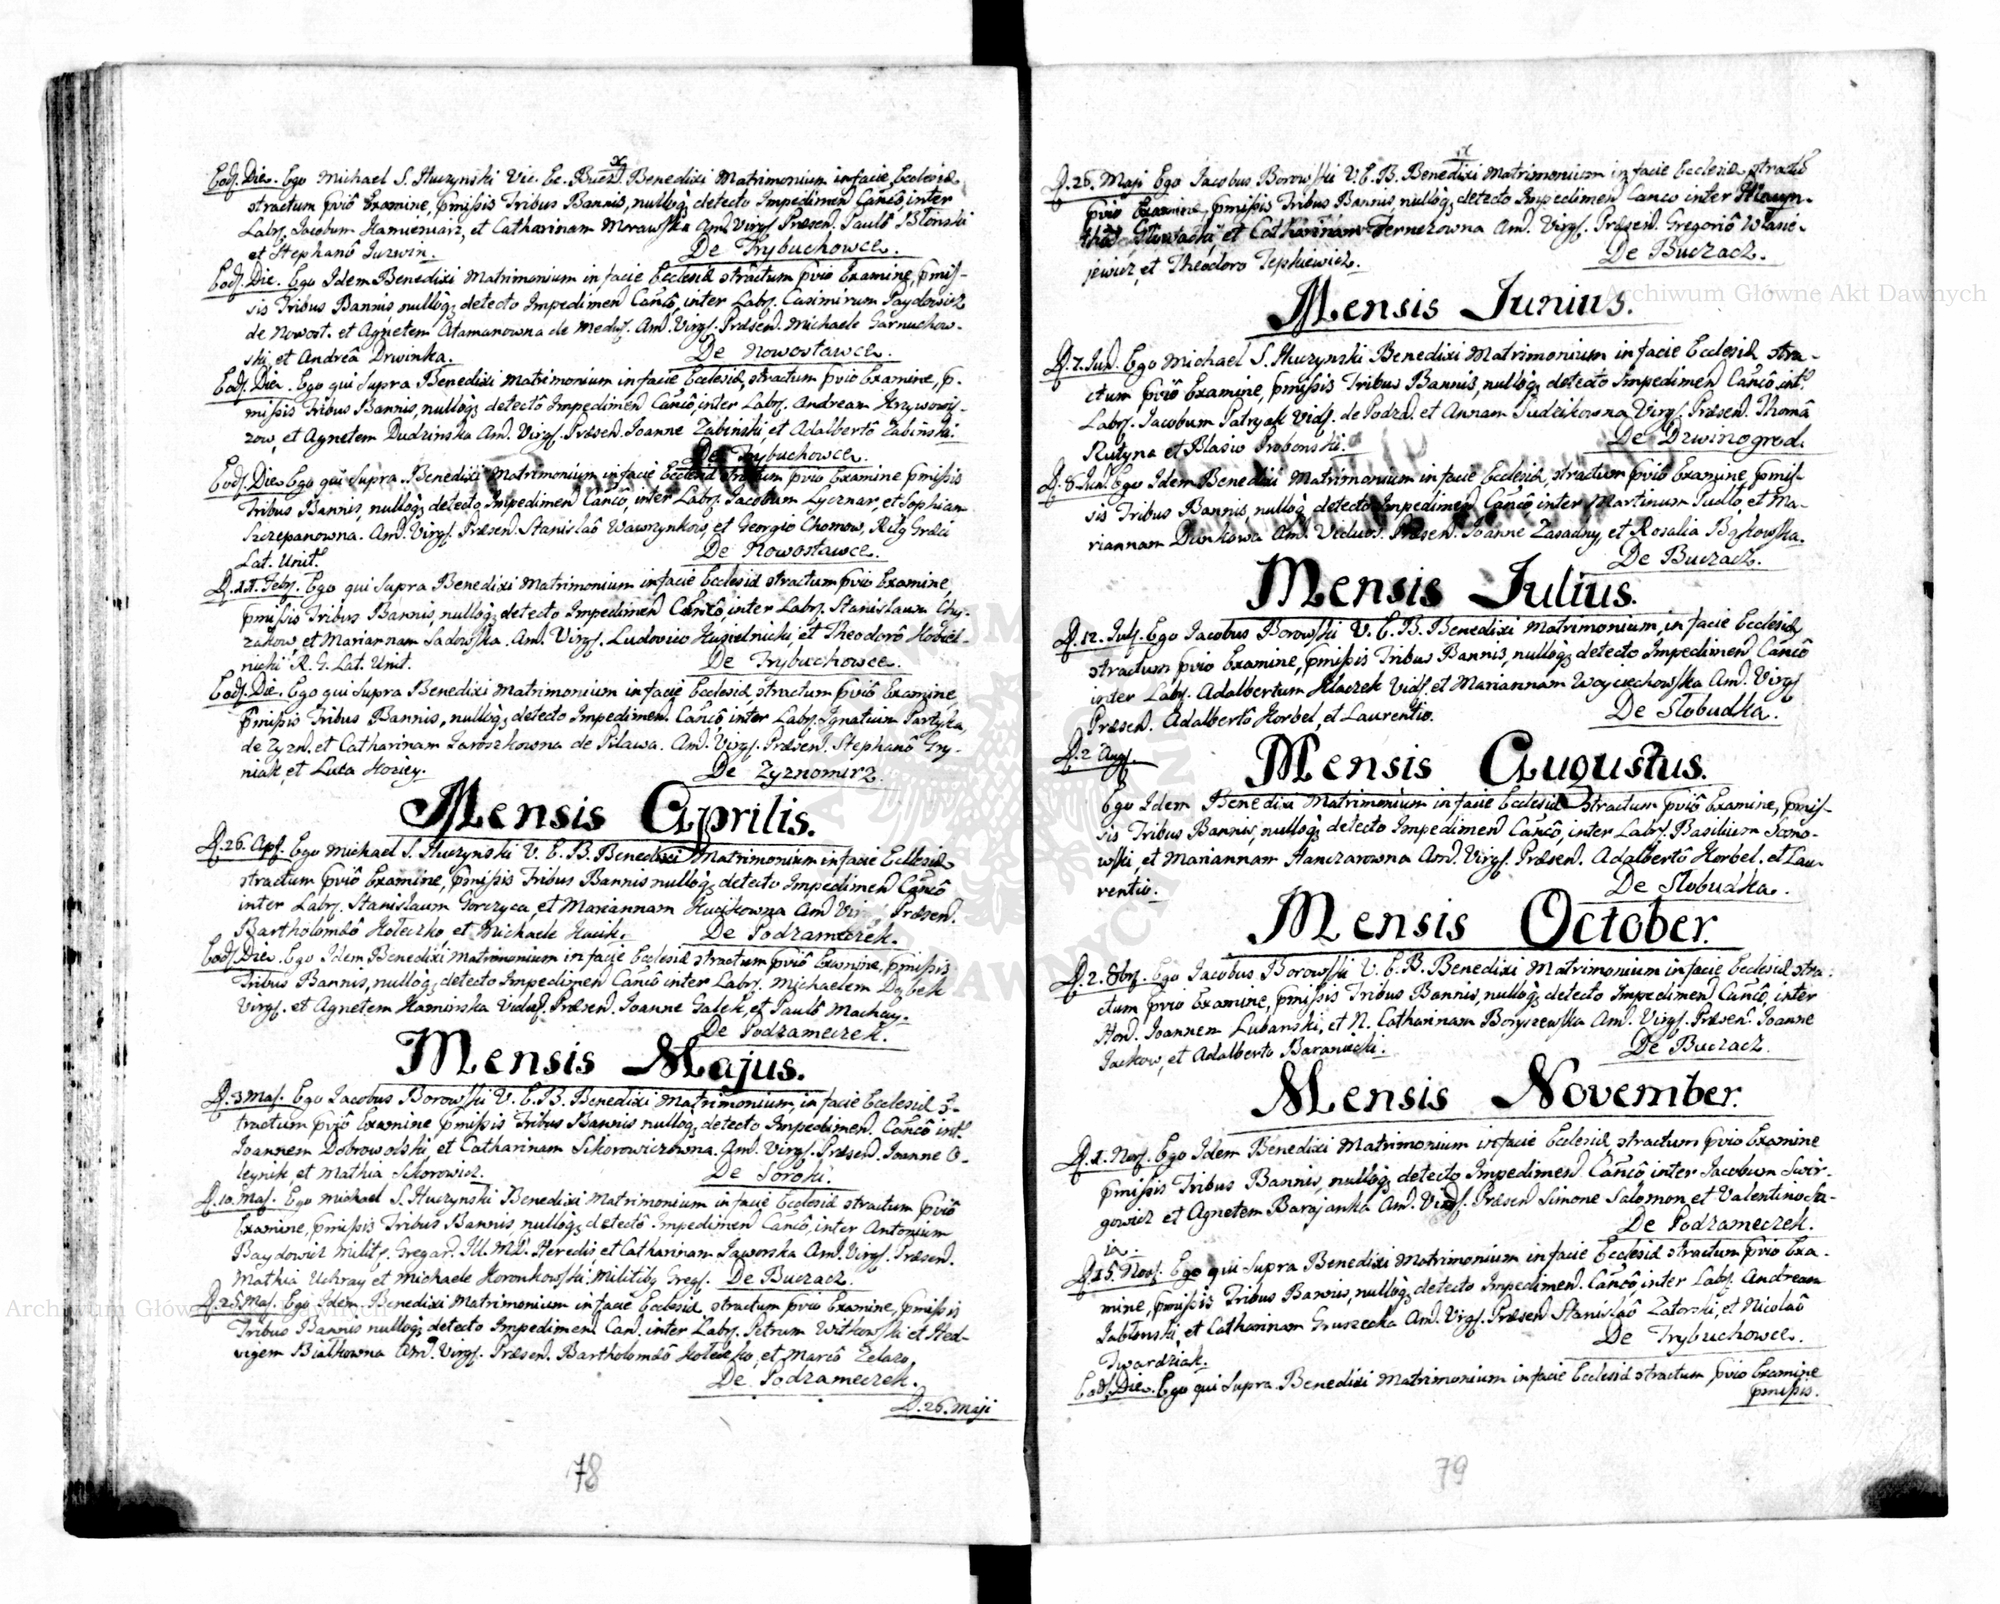 x
Eod. Die. Ego Michael S. Huczynski Vic. Ec. Bucz. Benedixi Matrimonium in facie Ecclesiæ
stractum pviô Examine, pmissis Tribus Bannis, nullóq; detecto Impedimen Cancô, inter
Labr. Jacobum Hamieniarz, et Catharinam Morawska Am. Virg. Præsen. Paulô Błonski
et Stephanô Jurwin. De Trybuchowce.
Eod. Die. Ego Idem Benedixi Matrimonium in facie Ecclesiæ stractum pvio Examine, pmis-
sis Tribus Bannis, nullóq; detecto Impedimen Cancô, inter Labr. Casimirum Paydowicz
de Nowost. et Agnetem Atamanowna de Medw. Am. Virg. Præsen. Michaele Garnuchow-
ski, et Andreâ Drwinka. De Nowostawce.
Eod. Die. Ego qui Supra Benedixi Matrimonium in facie Ecclesiæ, stractum pvio Examine, p-
missis Tribus Bannis, nullóq; detectô Impedimen Cancô, inter Labr. Andream Krzywowis-
zow, et Agnetem Dudzinska Am. Virg. Præsen. Joanne Zabinski, et Adalbertô Zabinski.
De Trybuchowce.
Eod. Die. Ego qui Supra Benedixi Matrimonium in facie Ecclesiæ stractum pvio Examine pmissis
Tribus Bannis, nullóq; detecto Impedimen Cancô, inter Labr. Jacobum Lycznar, et Sophiam
Szczepanowna. Am. Virg. Præsen. Stanislaô Wawrzynkow, et Georgio Chomow, Ritg Græci
Lat. Unit. De Nowostawce.
D. 11. Febr. Ego qui Supra Benedixi Matrimonium in facie Ecclesiæ stractum pvio Examine,
pmissis Tribus Bannis, nullóq; detecto Impedimen Cancô, inter Labr. Stanislaum
zakow, et Mariannam Sadowska. Am. Virg. Ludovico Kugielnicki, et Theodorô Kobiel-
nicki R. G. Lat. Unit. De Trybuchowce.
Eod. Die. Ego qui Supra Benedixi Matrimonium in facie Ecclesiæ, stractum pviô Examine
pmissis Tribus Bannis, nullóq; detecto Impedimen. Cancô, inter Labr. Ignatium Partyka,
de Zyzn. et Catharinam Jaroszkowna de Pilawa. Am. Virg. Præsen. Stephanô Gry-
niak, et Luca Koziey. De Zyznomirz.
Mensis Aprilis.
D. 26. Apr. Ego Michael S. Huczynski V. E. B. Benedixi Matrimonium in facie Ecclesiæ
stractum pviô Examine, pmissis Tribus Bannis nullóq; detecto Impedimen Cancô
inter Labr. Stanislaum Gorczyca, et Mariannam Kucikowna Am Vir Præsen.
Bartholomêô Koteczko, et Michaele Kucik. De Podzameczek.
Eod. Die. Ego Idem Benedixi Matrimonium in facie Ecclesiæ stractum pviô Examine, pmissis
Tribus Bannis, nullóq; detecto Impedimen Cancô inter Labr. Michaelem Dzbek
Virg. et Agnetem Kaminska Viduâ. Præsen. Joanne Galek, et Paulô Machay.
De Podzameczek.
Mensis Majus.
D. 3. Maj. Ego Jacobus Borowski V. E. B. Benedixi Matrimonium, in facie Ecclesiæ s-
tractum pviô Examine pmissis Tribus Bannis nullóq; detecto Impedimen. Cancô int.
Joannem Dobrowolski, et Catharinam Sikorowiczowna. Am. Virg. Præsen. Joanne O-
leynik et Mathia Sikorowicz. De Soroki.
D. 10. Maj. Ego Michael S. Huczynski Benedixi Matrimonium in facie Ecclesiæ stractum pviô
Examine, pmissis Tribus Bannis nullóq; detectô Impedimen Cancô, inter Antonium
Baydowicz Milit. Gregar. Ill. M. Heredis et Catharinam Jaworska Am. Virg. Præsen.
Mathia Uchray et Michaele Koronkowski Militibg Greg. De Buczacz.
D. 25. Maj. Ego Idem Benedixi Matrimonium in facie Ecclesiæ stractum pvio Examine, pmissis
Tribus Bannis nullóq; detecto Impedimen Can. inter Labr. Petrum Witkowski et Hed-
vigem Białkowna Am. Virg. Præsen. Bartholomêô Koteczko, et Marcô Zelazo.
De Podzameczek.
D. 26. Maji
78
x
D. 26. Maji Ego Jacobus Borowski V. E. B. Benedixi Matrimonium in facie Ecclesiæ stractũ
pvio Examine, pmissis Tribus Bannis, nullóq; detecto Impedimen Canco inter
et Catharinam Fernezowna Am. Virg. Præsen. Gregoriô Wasie-
jewicz, et Theodoro Tepkiewicz. De Buczacz.
Mensis Junius.
D. 7. Jun. Ego Michael S. Huczynski Benedixi Matrimonium in facie Ecclesiæ stra-
ctum, pviô Examine, pmissis Tribus Bannis, nullóq; detecto Impedimen Cancô, int.
Labr. Jacobum Patryak Vid. de Podza. et Annam Sudzikowna Virg. Præsen. Thomâ
Rutyna et Blasio Probonski. De Dzwinogrod.
D. 8. Jun. Ego Idem Benedixi Matrimonium in facie Ecclesiæ, stractum pviô Examine, pmis-
sis Tribus Bannis nullóq; detecto Impedimen Cancô, inter Martinum Pudło, et Ma-
riannam Dunkowa Am. Viduos. Præsen. Joanne Zasadny, et Rosalia Bąkowska.
De Buczacz.
Mensis Julius.
D. 12. Jul. Ego Jacobus Borowski V. E. B. Benedixi Matrimonium, in facie Ecclesiæ
stractum pvio Examine, pmissis Tribus Bannis, nullóq; detecto Impedimen Cancô
inter Labr. Adalbertum Klaczek Vid. et Mariannam Woyciechowska Am. Virg.
Præsen. Adalbertô Korbel, et Laurentio. De Słobudka.
D. 2 Aug.
Mensis Augustus.
Ego Idem Benedixi Matrimonium, in facie Ecclesiæ stractum pviô Examine, pmis-
sis Tribus Bannis, nullóq; detecto Impedimen Cancô, inter Labr. Basilium Sono-
wski, et Mariannam Hanczarowna Am. Virg. Præsen. Adalbertô Korbel. et Lau-
rentio. De Słobudka.
Mensis October.
D. 2. 8br. Ego Jacobus Borowski V. E. B. Benedixi Matrimonium in facie Ecclesiæ stra-
ctum pvio Examine, pmissis Tribus Bannis, nullóq; detecto Impedimen Cancô, inter
Hon. Joannem Lubanski, et N. Catharinam Boryszewska Am. Virg. Præsen. Joanne
Jackow, et Adalberto Baranicki. De Buczacz.
Mensis November.
D. 1. Nov. Ego Idem Benedixi Matrimonium in facie Ecclesiæ stractum pvio Examine
pmissis Tribus Bannis, nullóq; detecto Impedimen. Cancô inter Jacobum Swir-
gowicz et Agnetem Barajanka Am. Virg. Præsen Simone Salomon et Valentino Sa-
ia. De Podzameczek.
D. 15. Nov. Ego qui Supra Benedixi Matrimonium in facie Ecclesiæ stractum pvio Exa-
mine, pmissis Tribus Bannis, nullóq; detecto Impedimen. Cancô inter Labr. Andream
Jabłonski, et Catharinam Gruszecka Am. Virg. Præsen Stanislaô Zatorski, et Nicolaô
Twardziak. De Trybuchowce.
Eod. Die. Ego qui Supra Benedixi Matrimonium in facie Ecclesiæ stractum pvio Examine
pmissis.
79
Archiwum Główne Akt Dawnych